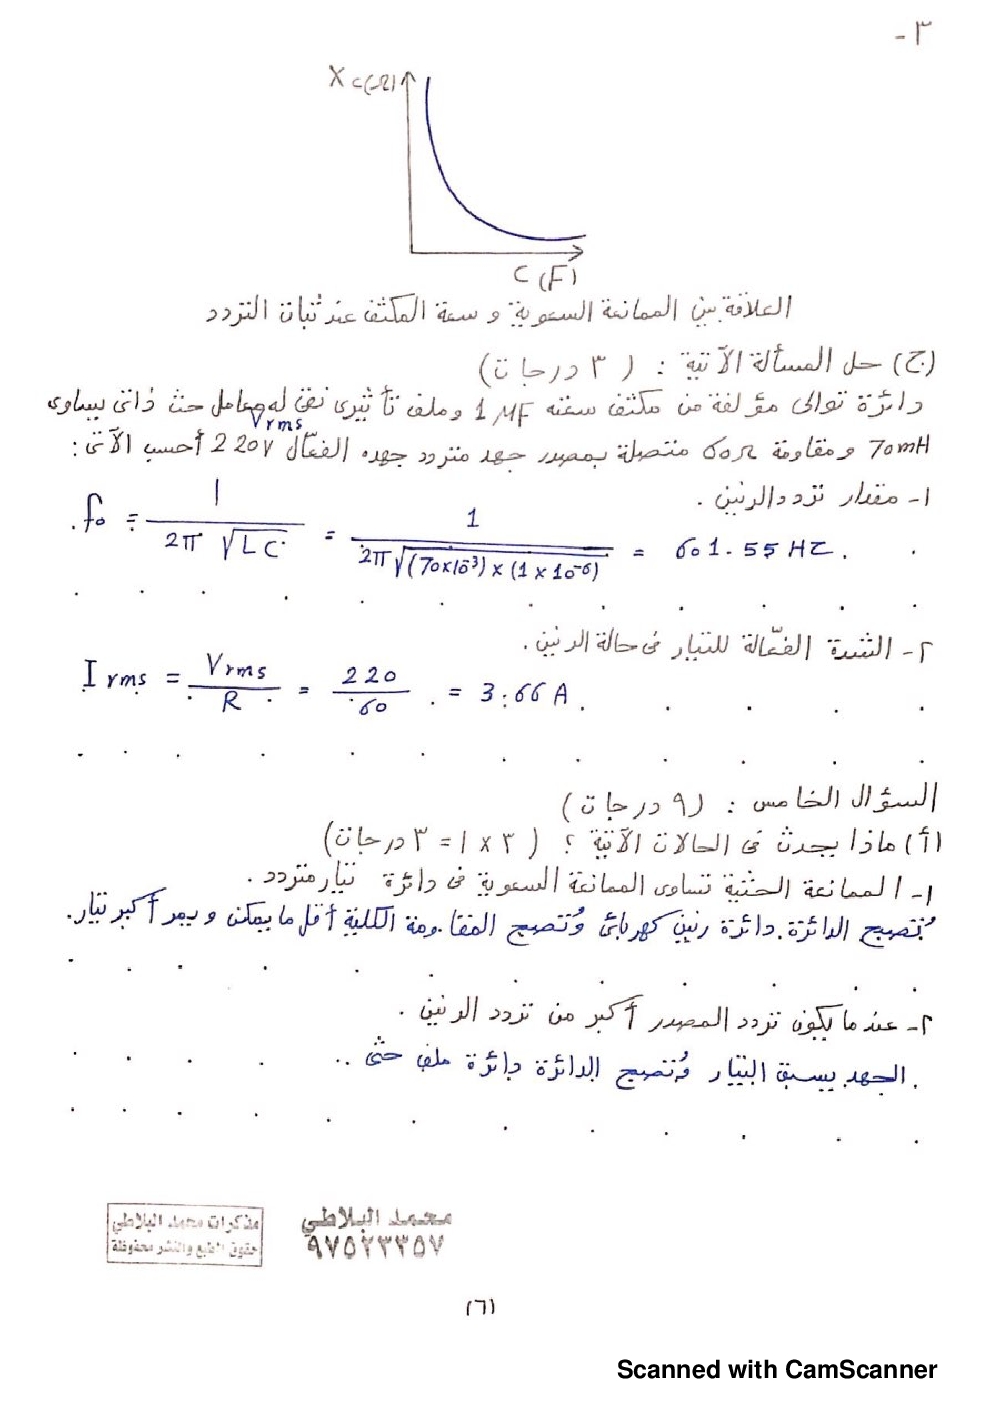 ٣-
Xc(Ω)
C (F)
العلاقة بين الممانعة السعوية و سعة المكثف عند ثبات التردد
(ج) حل المسألة الآتية : ( ٣ درجات)
دائرة توالى مؤلفة من مكثف سعته 1 µF وملف تأثيرى نقى له معامل حث ذاتى يساوى
Vrms
70mH ومقاومة 60Ω متصلة بمصدر جهد متردد جهده الفعّال 220V أحسب الآتى :
١- مقدار تردد الرنين .
f₀ = 1 / 2π √LC = 1 / 2π√(70x10⁻³) x (1 x 10⁻⁶) = 601.55 HZ.
٢- الشدة الفعّالة للتيار فى حالة الرنين .
I rms = Vrms / R = 220 / 60 = 3.66 A
السؤال الخامس : (٩ درجات)
(أ) ماذا يحدث فى الحالات الآتية ؟ ( ٣ x ١ = ٣ درجات)
١- الممانعة الحثية تساوى الممانعة السعوية فى دائرة تيار متردد .
تصبح الدائرة دائرة رنين كهربائى وتصبح المقاومة الكلية أقل ما يمكن و يمر أكبر تيار.
٢- عندما يكون تردد المصدر أكبر من تردد الرنين .
الجهد يسبق التيار وتصبح الدائرة دائرة ملف حثى ..
مذكرات محمد البلاطي
حقوق الطبع والنشر محفوظة
محمد البلاطي
٩٧٥٢٣٣٥٧
(٦)
Scanned with CamScanner